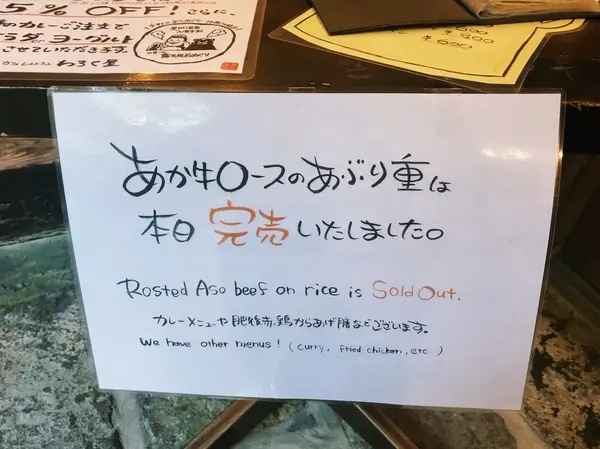 5% OFF! さらに、
カレーご注文で
ヨーグルト
させていただきます。
わろく屋
¥600
あか牛ロースのあぶり重は
本日 完売いたしました。
Rosted Aso beef on rice is Sold Out.
カレーメニューや肥後赤鶏からあげ膳などございます。
We have other menus! (curry, fried chicken, etc.)